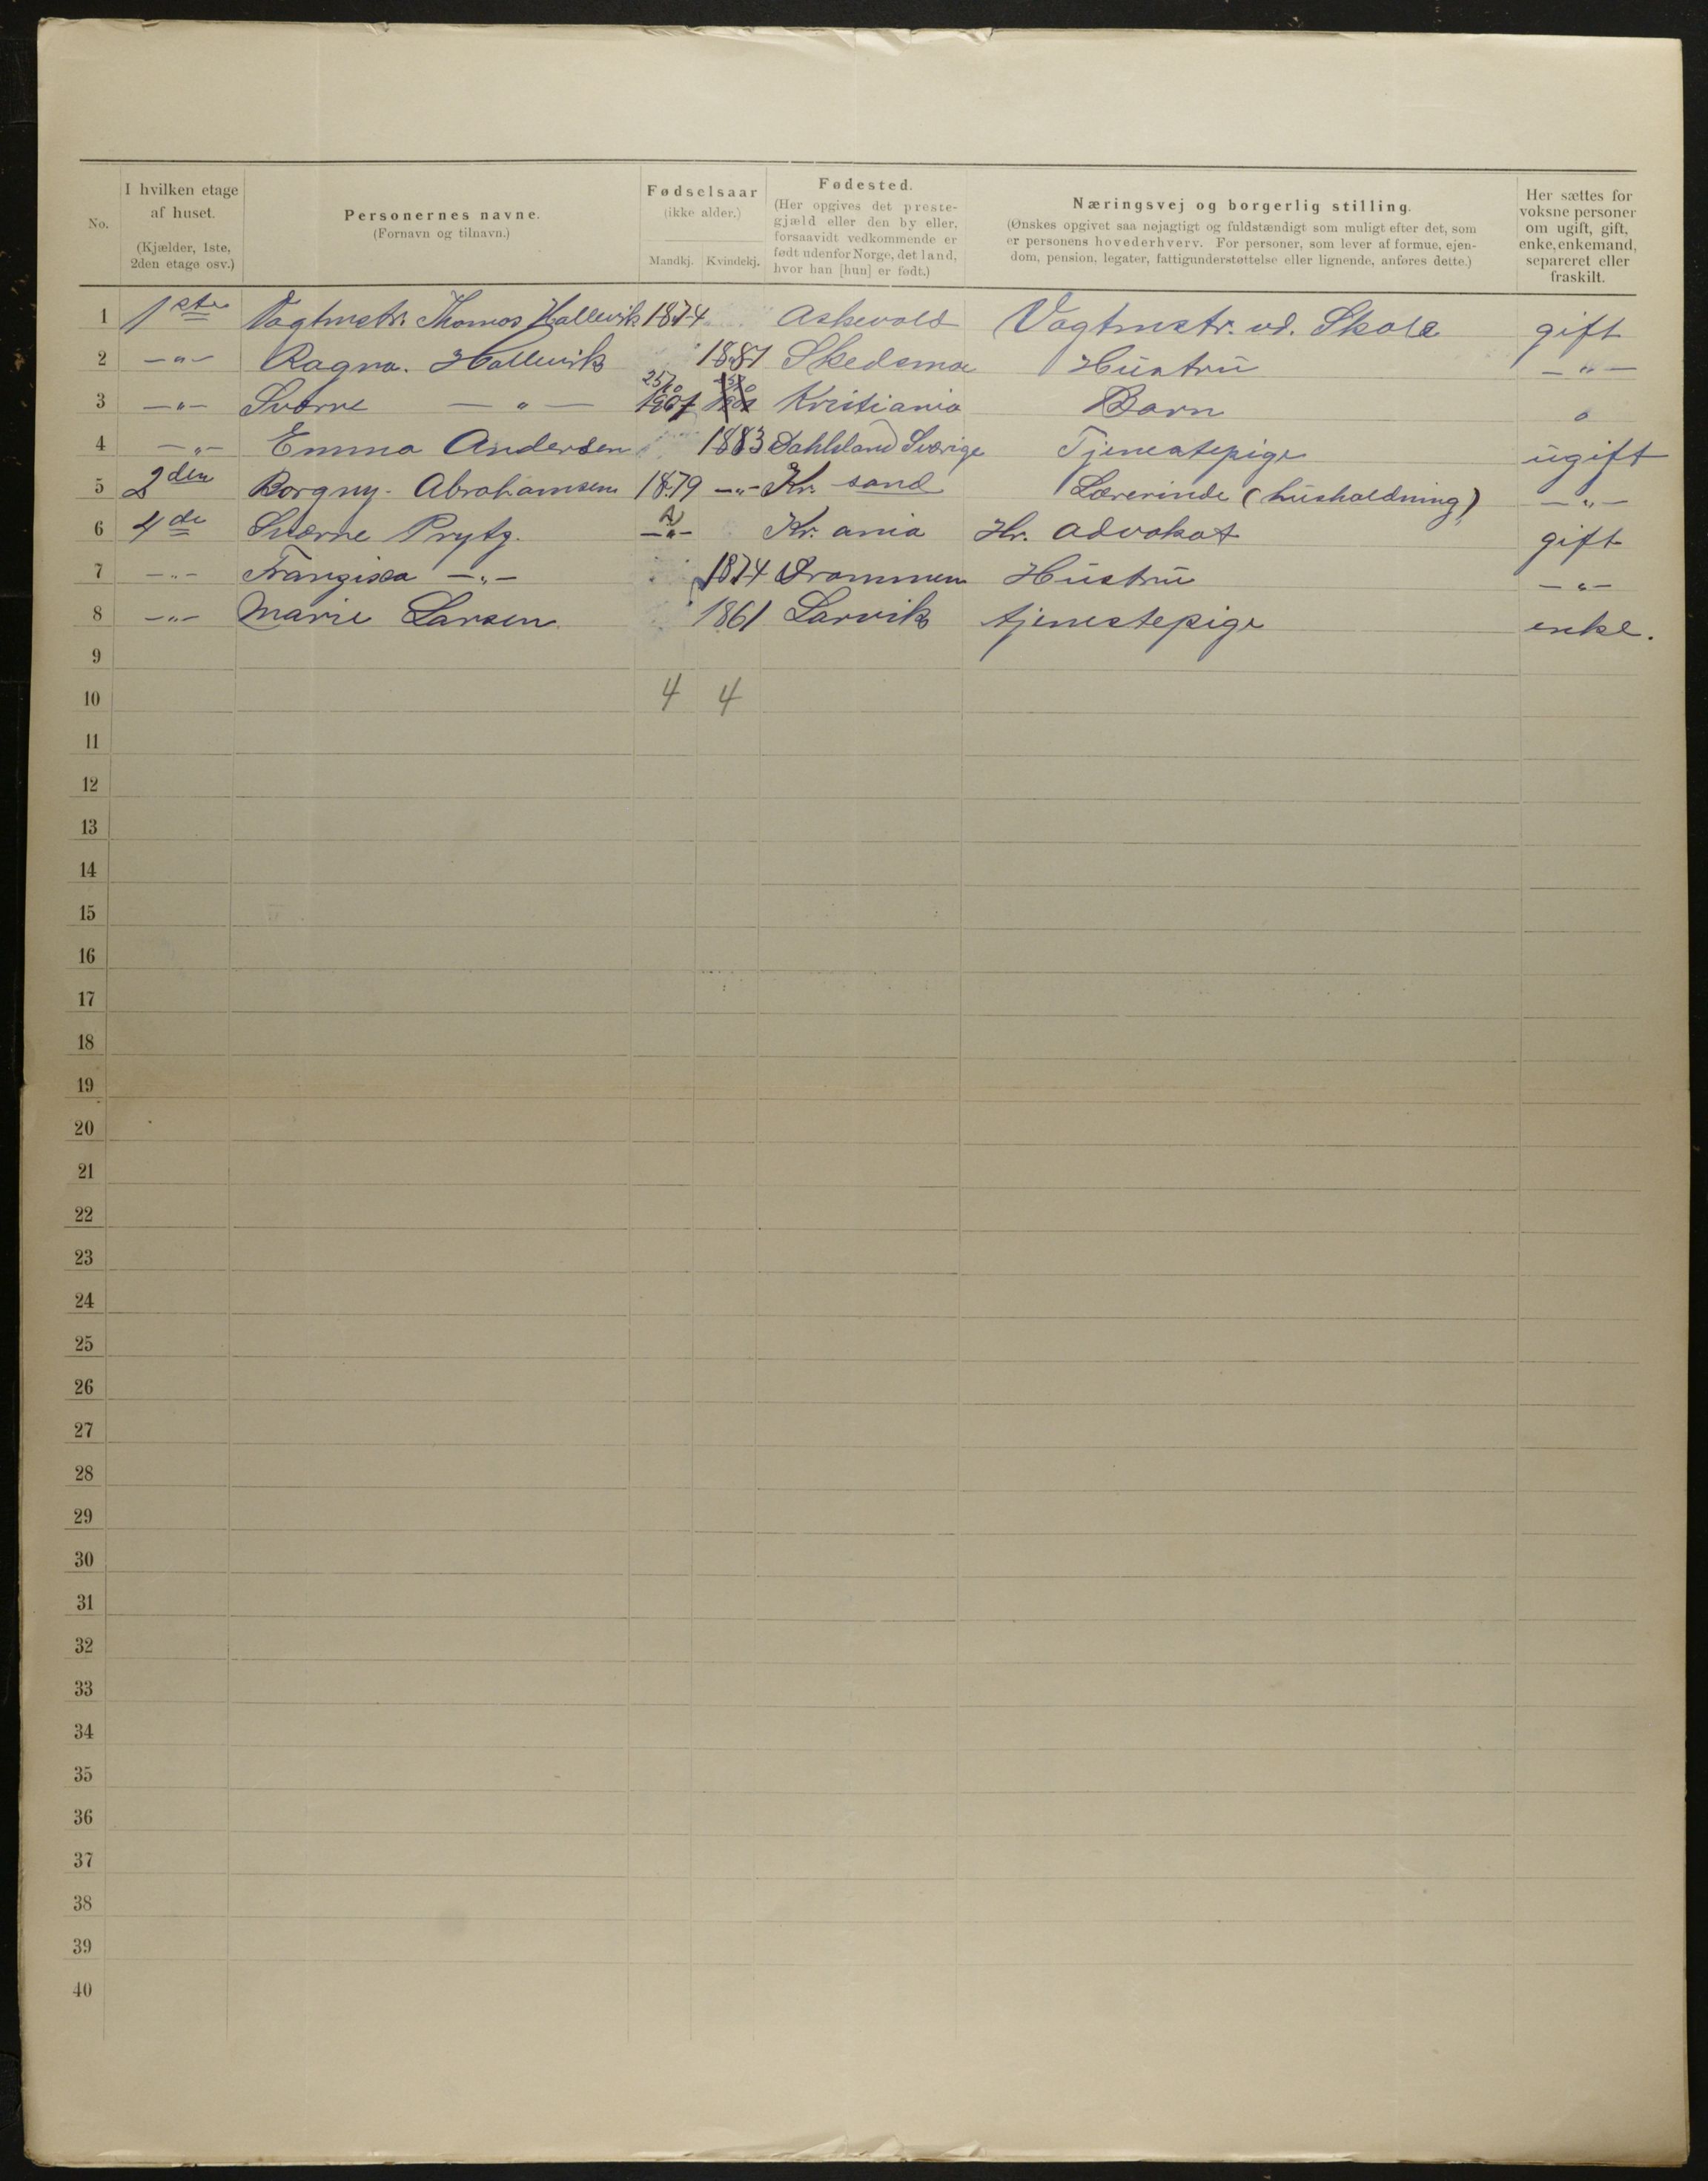 No.
I hvilken etage af huset. (Kjælder, 1ste, 2den etage osv.)
Personernes navne. (Fornavn og tilnavn.)
Fødselsaar (ikke alder.) Mandkj. Kvindekj.
Fødested. (Her opgives det prestegjæld eller den by eller, forsaavidt vedkommende er født udenfor Norge, det land, hvor han [hun] er født.)
Næringsvej og borgerlig stilling. (Ønskes opgivet saa nøjagtigt og fuldstændigt som muligt efter det, som er personens hovederhverv. For personer, som lever af formue, ejendom, pension, legater, fattigunderstøttelse eller lignende, anføres dette.)
Her sættes for voksne personer om ugift, gift, enke, enkemand, separeret eller fraskilt.
1 1ste Vagtmstr. Thomas Hallevik 1874 Askevold Vagtmstr. vd. Skole gift
2 -"- Ragna. Hallevik 1887 Skedsmo Hustru -"-
3 -"- Sverre -"- 25/10 1907 Kristiania Barn o
4 -"- Emma Andersen 1883 Dahlsland Sverige Tjenestepige ugift
5 2den Borgny. Abrahamsen 1879 -"- Kr. sand Lærerinde (husholdning) -"-
6 4de Sverre Prytz. -"- Kr. ania Hr. Advokat gift
7 -"- Frangisca -"- 1874 Drammen Hustru -"-
8 -"- Marie Larsen 1861 Larvik tjenestepige enke.
9
10 4 4
11
12
13
14
15
16
17
18
19
20
21
22
23
24
25
26
27
28
29
30
31
32
33
34
35
36
37
38
39
40